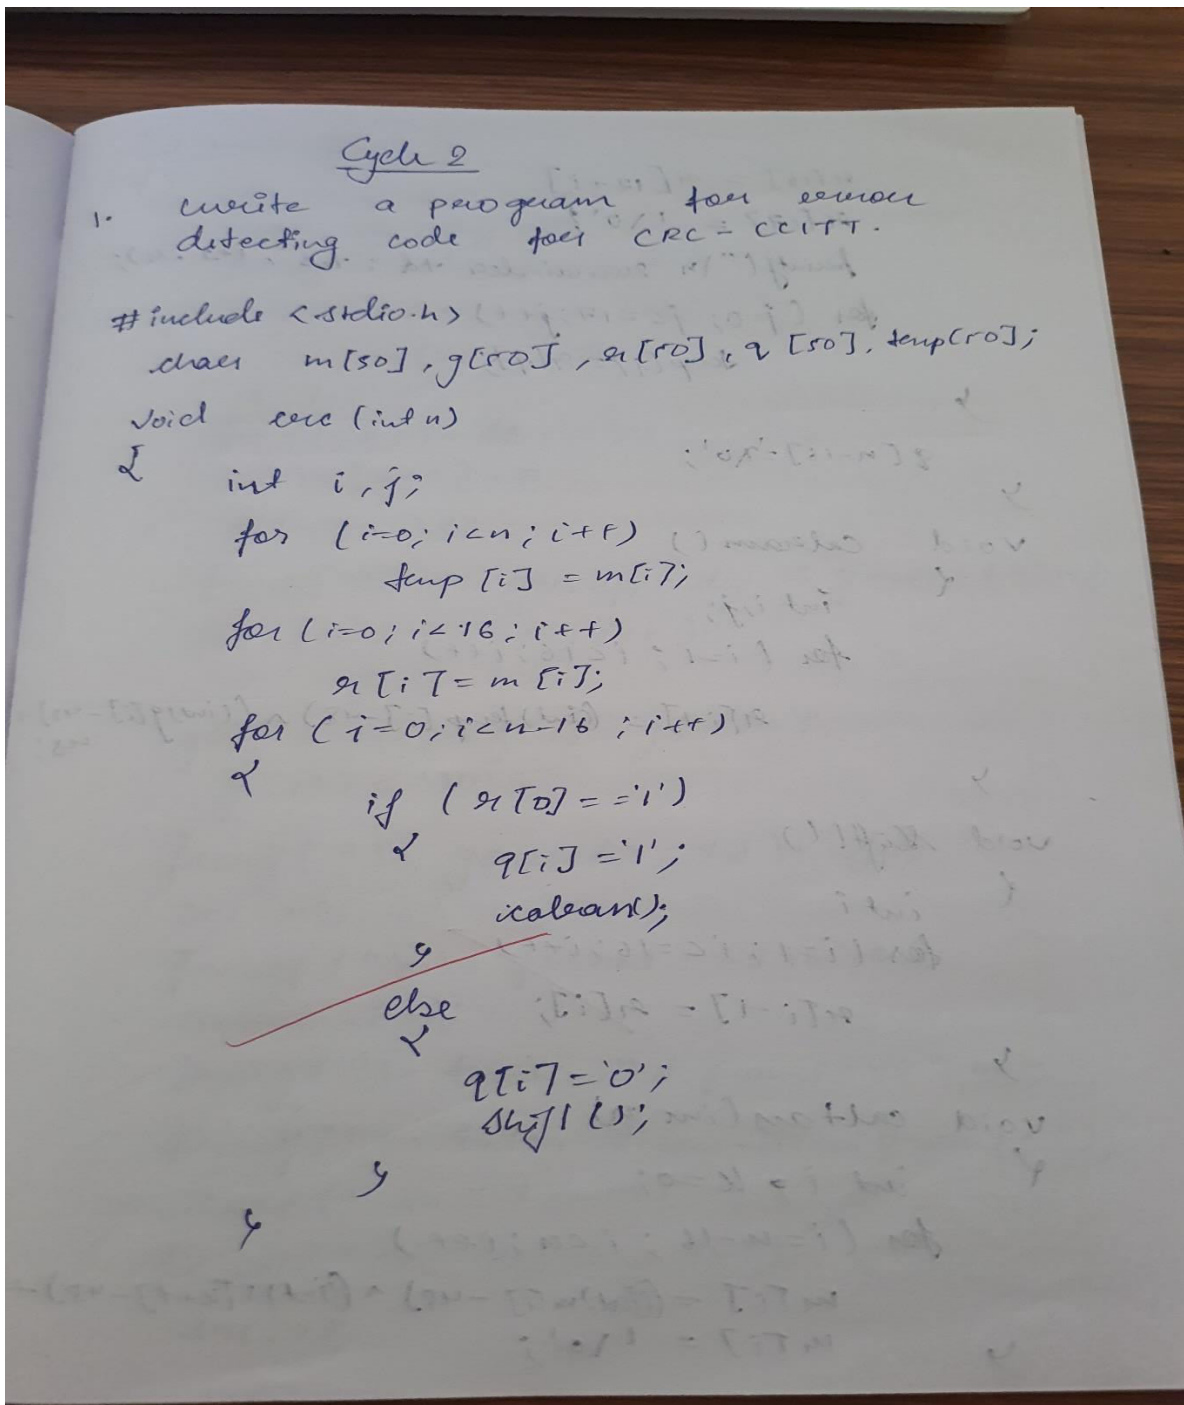 Cycle 2
1. write a program for error
detecting code for CRC-CCITT.
#include <stdio.h>
char m[50], g[50], r[50], q[50], temp[50];
void crc (int n)
{
int i, j;
for (i=0; i<n; i++)
temp [i] = m[i];
for (i=0; i<16; i++)
r[i] = m[i];
for (i=0; i<n-16; i++)
{
if (r[0]=='1')
{
q[i]='1';
}
else
{
q[i]='0';
shiftl();
}
}